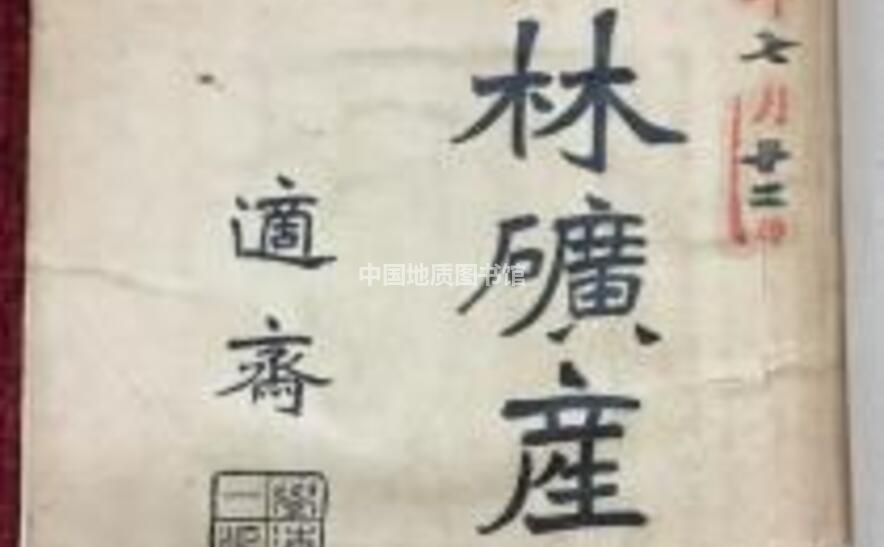 七月廿二
林礦產
適齋
中国地质图书馆